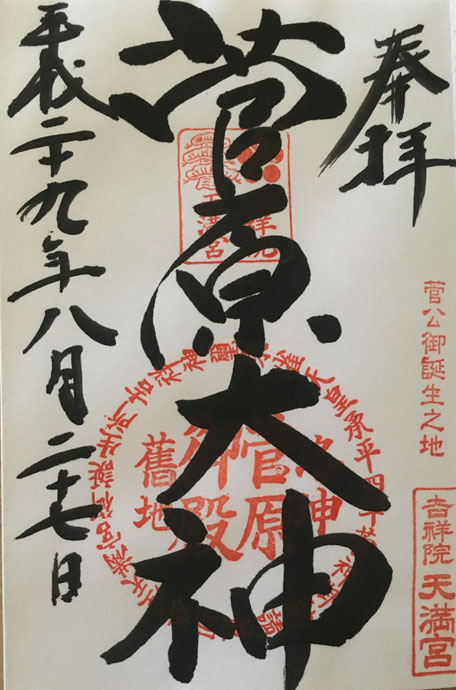 奉拝
菅公御誕生之地
吉祥院天満宮
菅原大神
菅原
御殿
舊地
平成二十九年八月二十七日